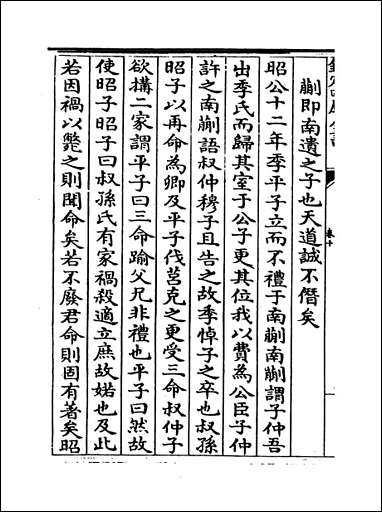 蒯即南遺之子也天道誠不僭矣
昭公十二年季平子立而不禮于南蒯南蒯謂子仲吾
出季氏而歸其室于公子更其位我以費為公臣子仲
許之南蒯語叔仲穆子且告之故季悼子之卒也叔孫
昭子以再命為卿及平子伐莒克之更受三命叔仲子
欲構二家謂平子曰三命踰父兄非禮也平子曰然故
使昭子昭子曰叔孫氏有家禍殺適立庶故婼也及此
若因禍以斃之則聞命矣若不廢君命則固有著矣昭